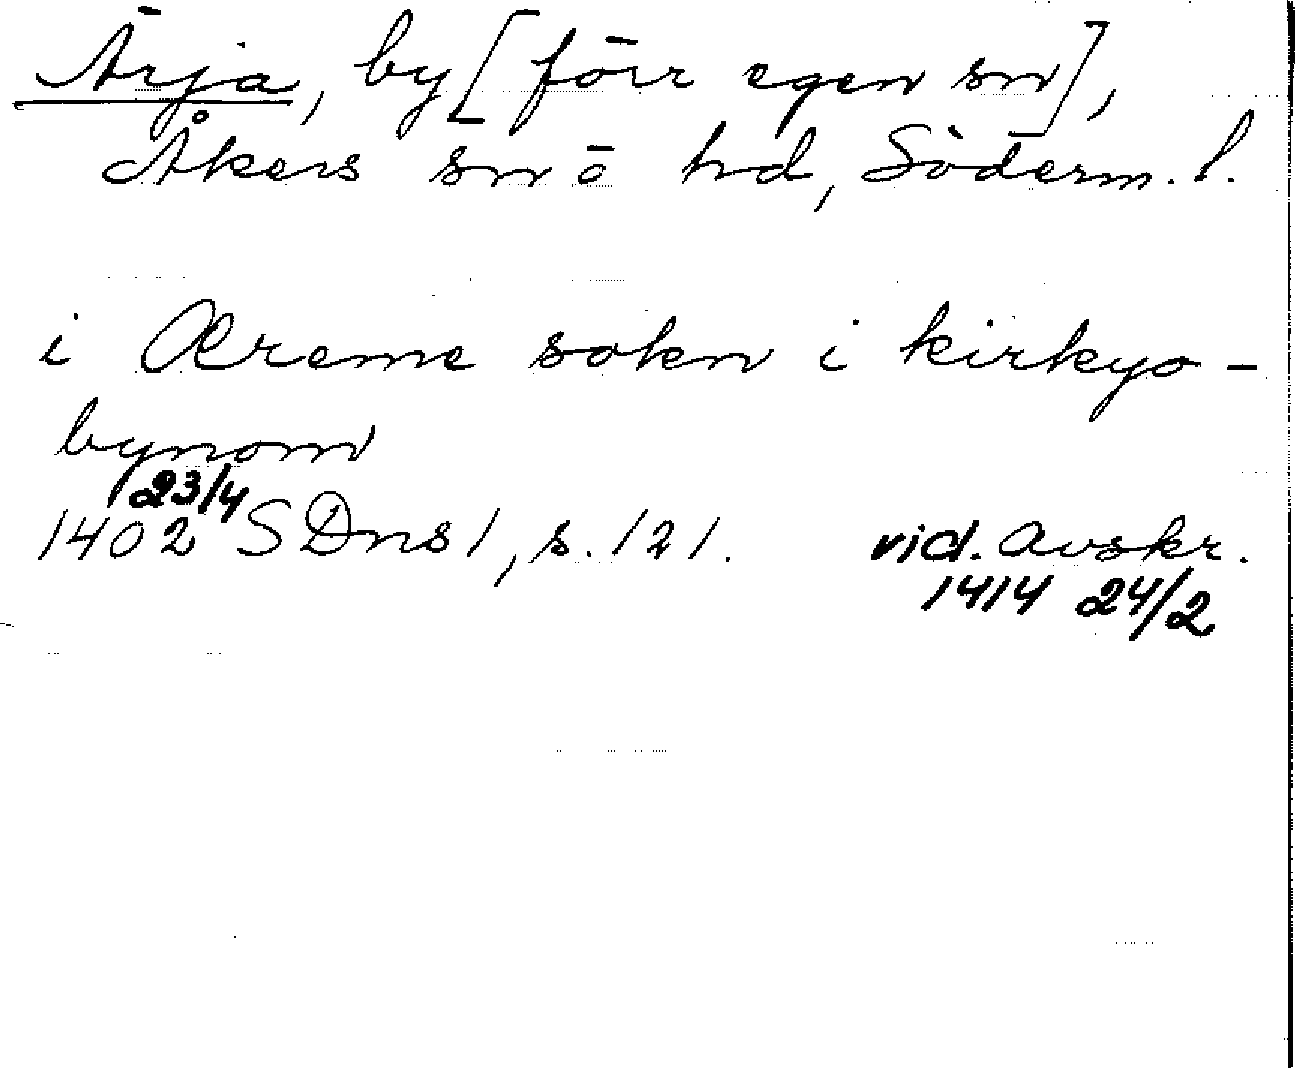 Ärja, by [förr egen sn],
Åkers sn o hd, Söderm. l.
i Æreme sokn i kirkyo-
bynom
23/4
1402 SDns 1, s. 121. vid. avskr.
1414 24/2